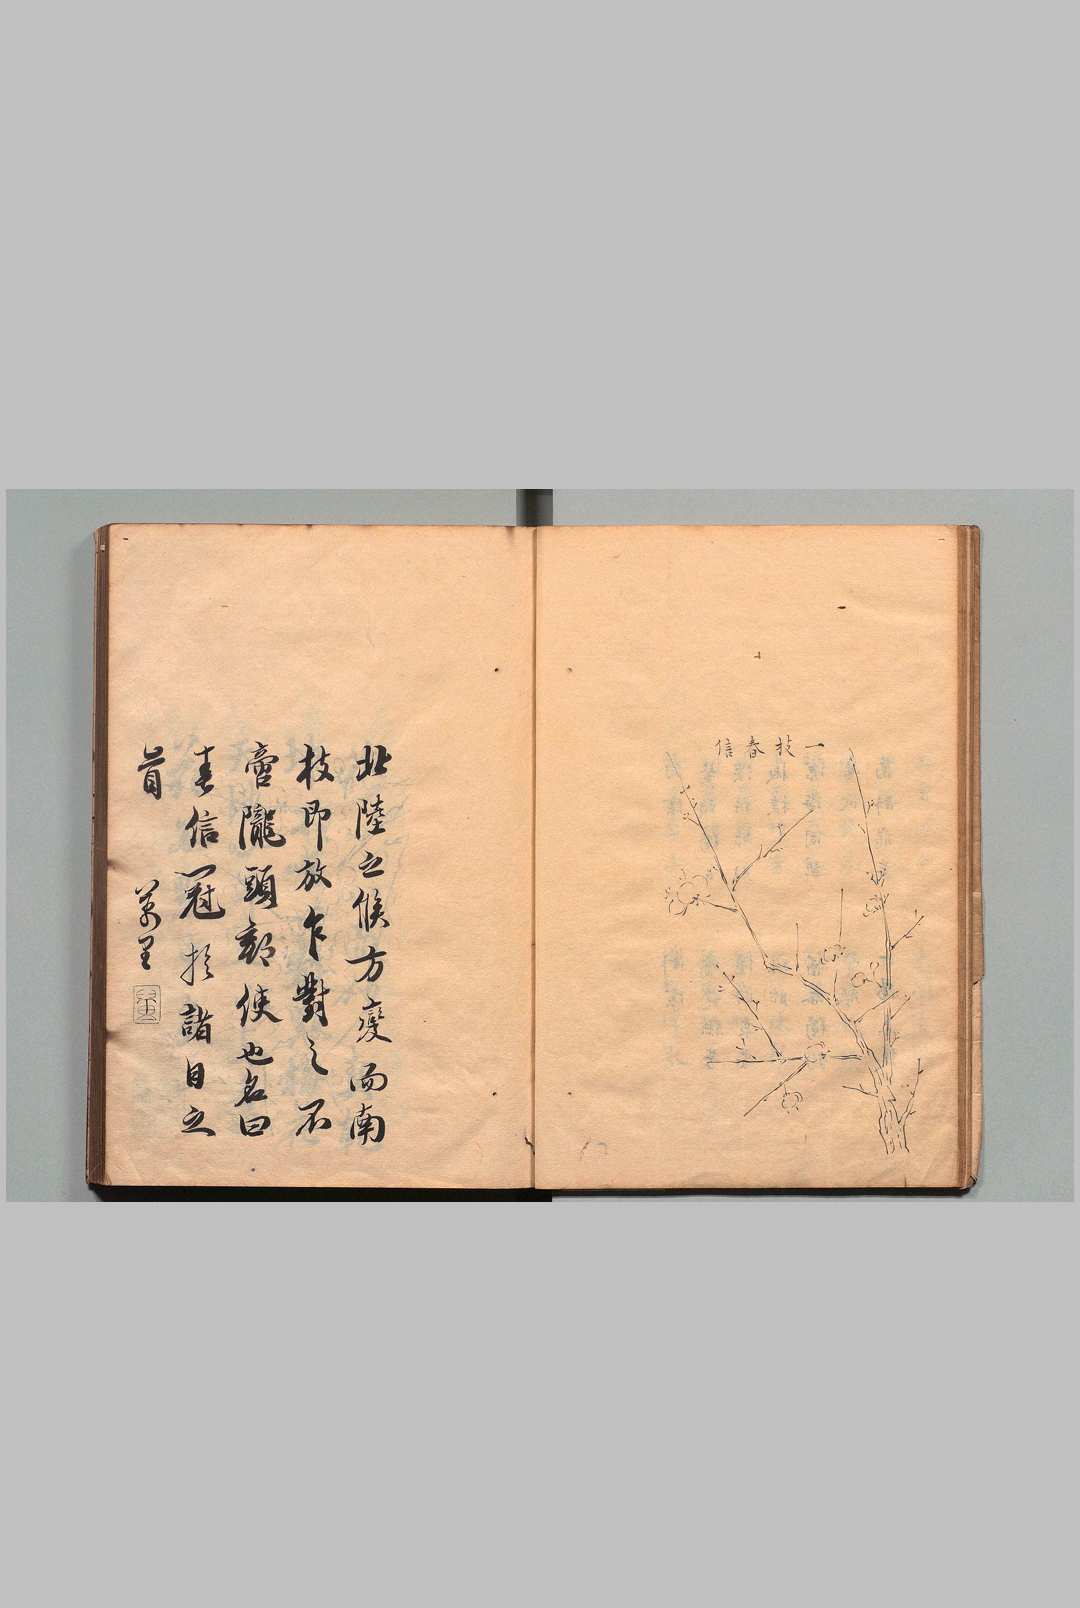 一枝春信
北陸之候方變而南
枝即放乍對之不
啻隴頭郵使也名曰
春信冠於諸目之
首
萬里